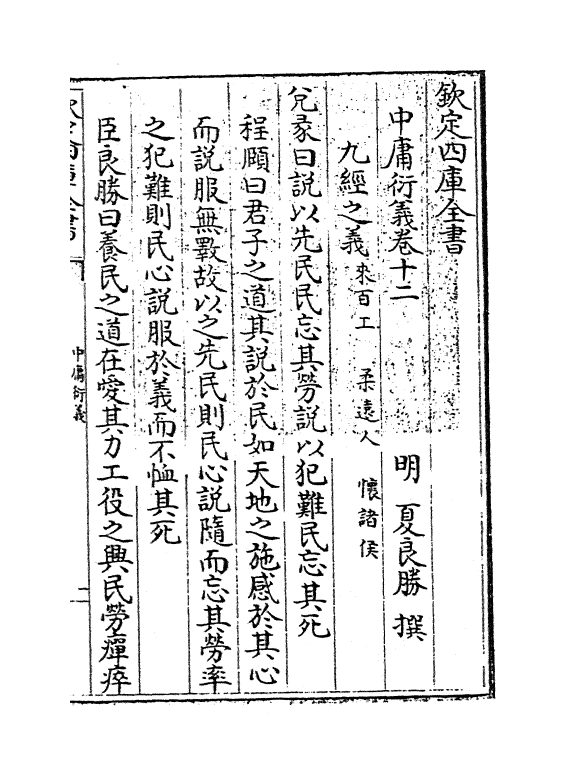 欽定四庫全書
中庸衍義卷十二
明 夏良勝 撰
九經之義 來百工 柔遠人 懷諸侯
兌彖曰說以先民民忘其勞說以犯難民忘其死
程頤曰君子之道其說於民如天地之施感於其心
而說服無斁故以之先民則民心說隨而忘其勞率
之犯難則民心說服於義而不恤其死
臣良勝曰養民之道在愛其力工役之興民勞癉瘁
欽定四庫全書
中庸衍義